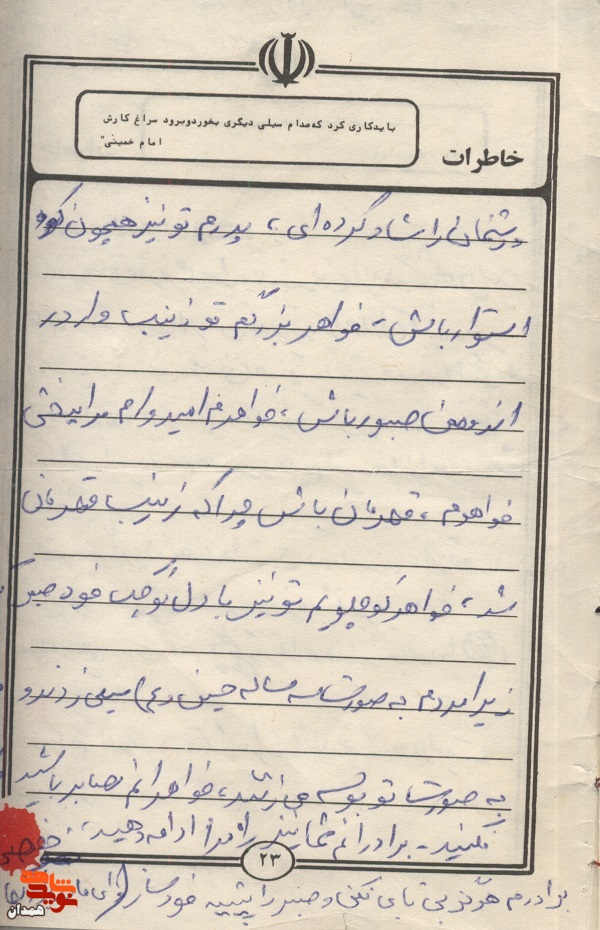 بایدکاری کرد که مدام سیلی دیگری بخورد و برود سراغ کارش
امام خمینی"
خاطرات
دشمنان را شاد کرده‌ای، پدرم تو نیز همچون کوه
استوار باش، خواهر بزرگم تو زینب وار در
اندوهمن صبور باش، خواهرم امیدوارم مرا ببخشی
خواهرم، قهرمان باش چرا که زینب قهرمان
شد، خواهر کوچلویم تو نیز با دل کوچک خود صبر
زیرا مردم به صورت سه ساله حسین (ع) سیلی زدند و
به صورت تو بوسه می‌زنند، خواهرانم صابر باشید
برادرانم شما نیز راه مرا ادامه دهید،
۲۳
برادرم هرگز بی تابی نکن و صبر را پیشه خود ساز
همدان